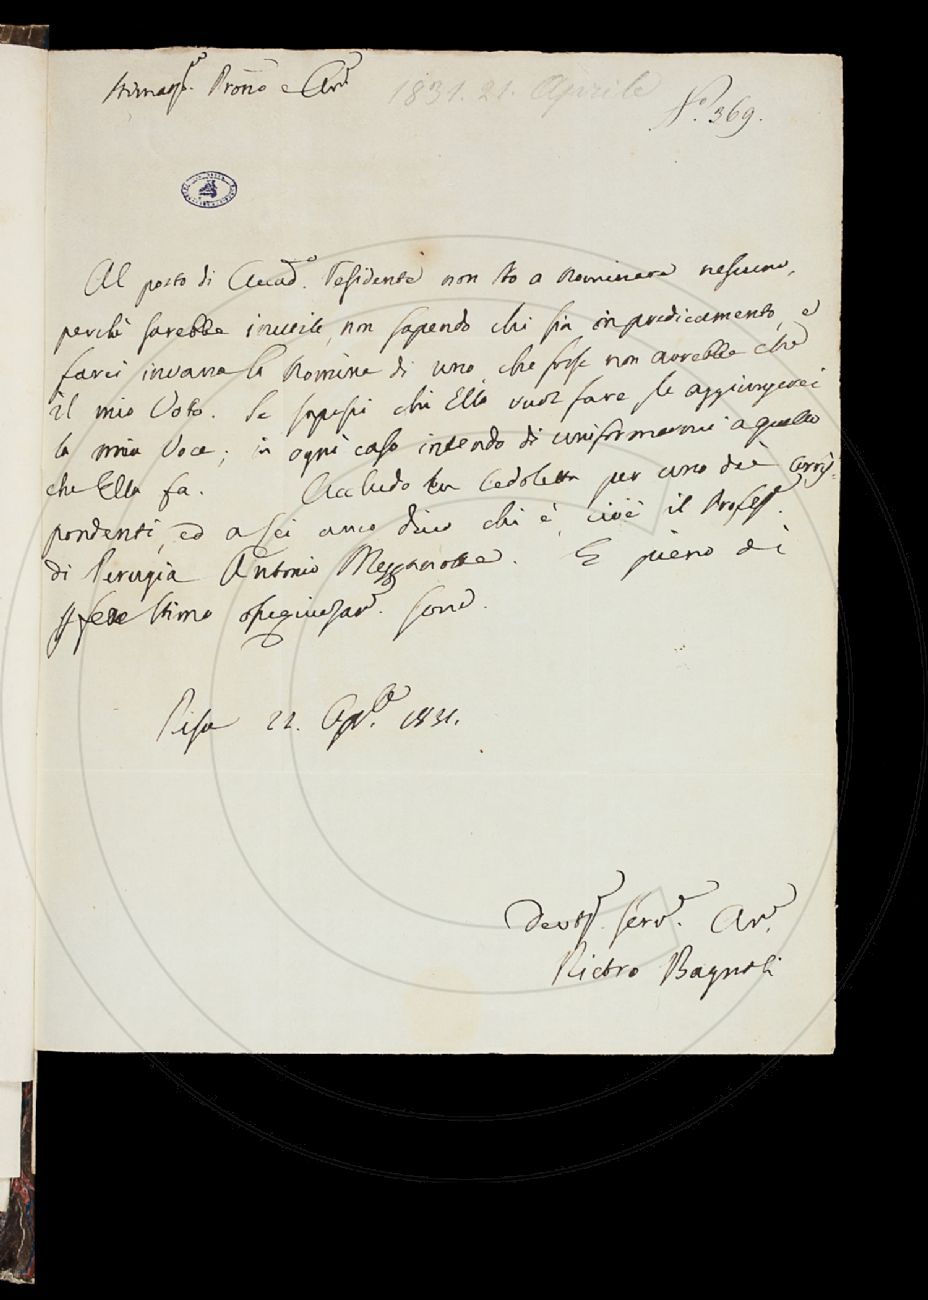 Stimatiss.e Prone e Am.e
1831. 21. Aprile
N.o 369.
Al posto di Accad.o Residente non ho a nominare nessuno,
perchè sarebbe inutile, non sapendo chi sia in predicamento, e
farei invano la nomina di uno, che forse non avrebbe che
il mio Voto. Se sapessi chi Ella vuol fare le aggiungerei
la mia Voce; in ogni caso intendo di uniformarmi a quello
che Ella fa. Accludo la Cedoletta per uno dei Corris-
pondenti, ed a Lei anco dico chi è, cioè il Profess.e
di Perugia Antonio Mezzanotte. E pieno di
stima ossequiosam.e sono.
Pisa 22. Aprle 1831.
Devotis.o Serv.e Am.e
Pietro Bagnoli